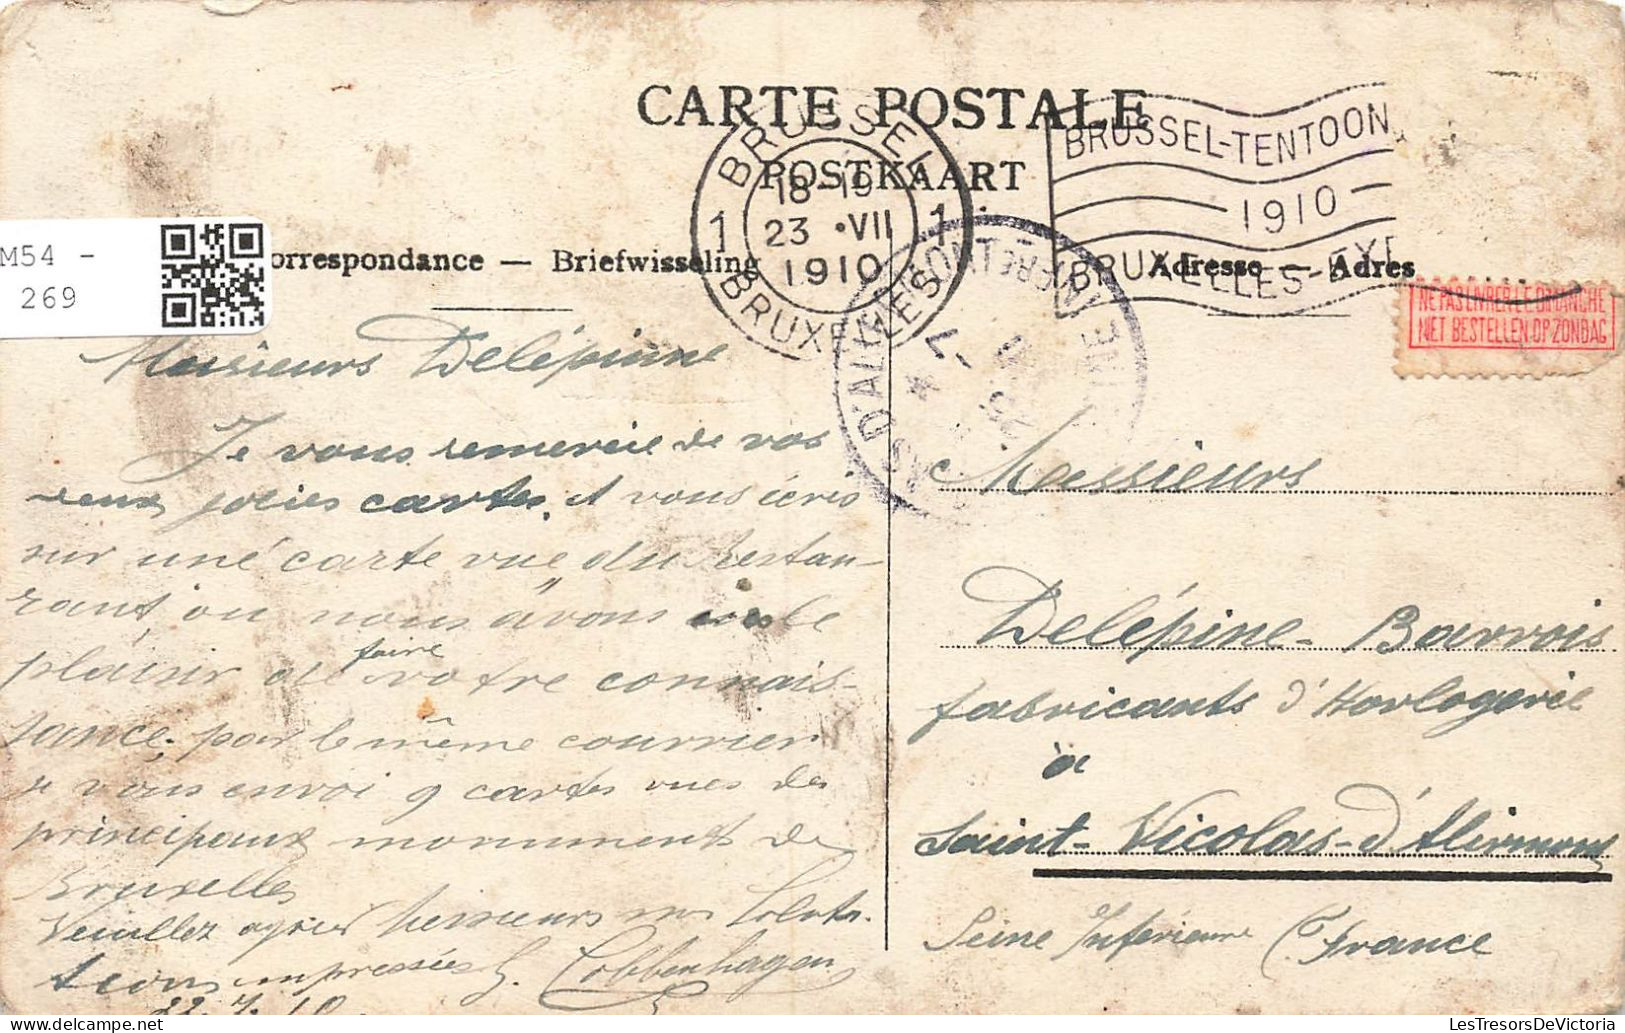 CARTE POSTALE
POSTKAART
Correspondance — Briefwisseling
Adresse — Adres
BRUSSEL
1 18-19 1
23 •VII
1910
BRUXELLES
BRUSSEL-TENTOON
1910
BRUXELLES-EXP
NE PAS LIVRER LE DIMANCHE
NIET BESTELLEN OP ZONDAG
M54 -
269
Messieurs Delépinne
Je vous remercie de vos
deux jolies cartes, et vous écris
sur une carte vue du Restau-
rant ou nous avons eu le
plaisir de faire votre connais-
sance; par le même courrier
je vous envoi 9 cartes vues des
principaux monuments de
Bruxelles
Veuillez agréer Messieurs mes Saluta-
tions empressées G. Cobbenhagen
22.7.10
Messieurs
Delépine-Barrois
fabricants d'Horlogerie
à
Saint-Nicolas-d'Aliermont
Seine Inférieure (France
LesTresorsDeVictoria